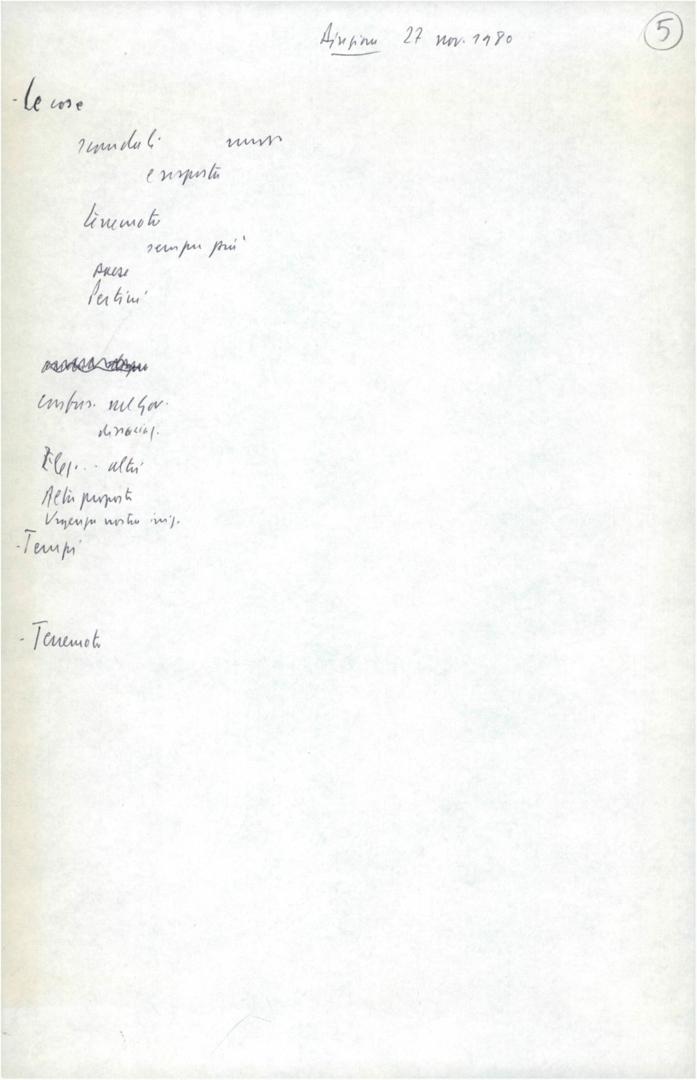 Direzione 27 nov. 1980
5
- Le cose
scandali nuovi
e risposta
terremoto
sempre più
Paese
Pertini
confus. nel Gov.
dissociaz.
altri
Altre proposte
Urgenza nostra iniz.
- Tempi
- Terremoto